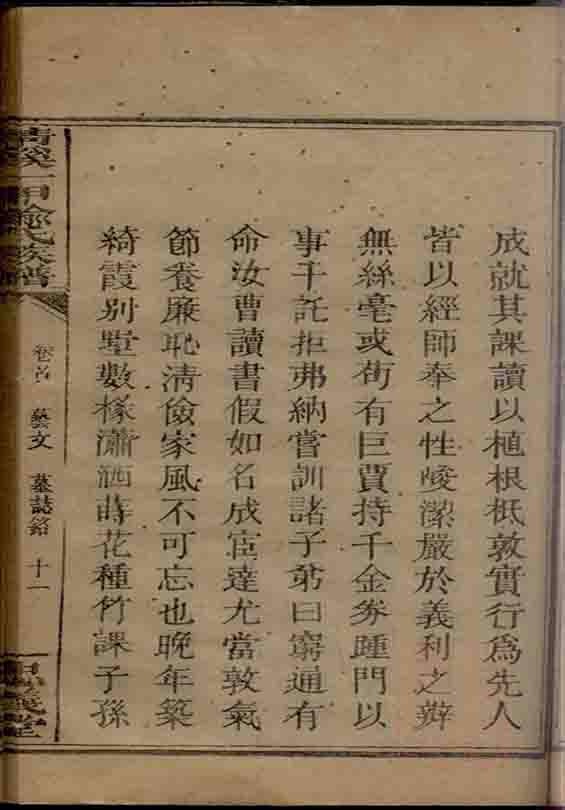 成就其課讀以植根柢敦實行爲先人
皆以經師奉之性峻潔嚴於義利之辯
無絲毫或茍有巨賈持千金券踵門以
事干託拒弗納嘗訓諸子弟曰窮通有
命汝曹讀書假如名成宦達尤當敦氣
節養廉恥清儉家風不可忘也晚年築
綺霞别墅數椽瀟洒蒔花種竹課子孫
清溪一甲徐氏族譜
卷首 藝文 墓誌銘 十一